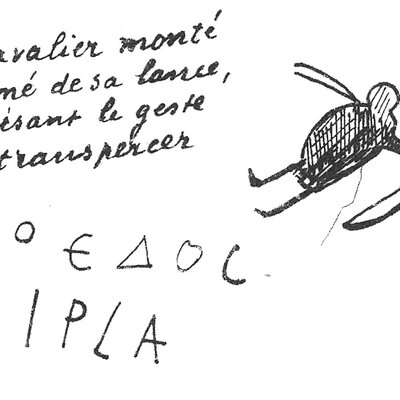 avalier monté
mé de sa lance,
ésant le geste
transpercer
° Є Δ Ο C
I P L A